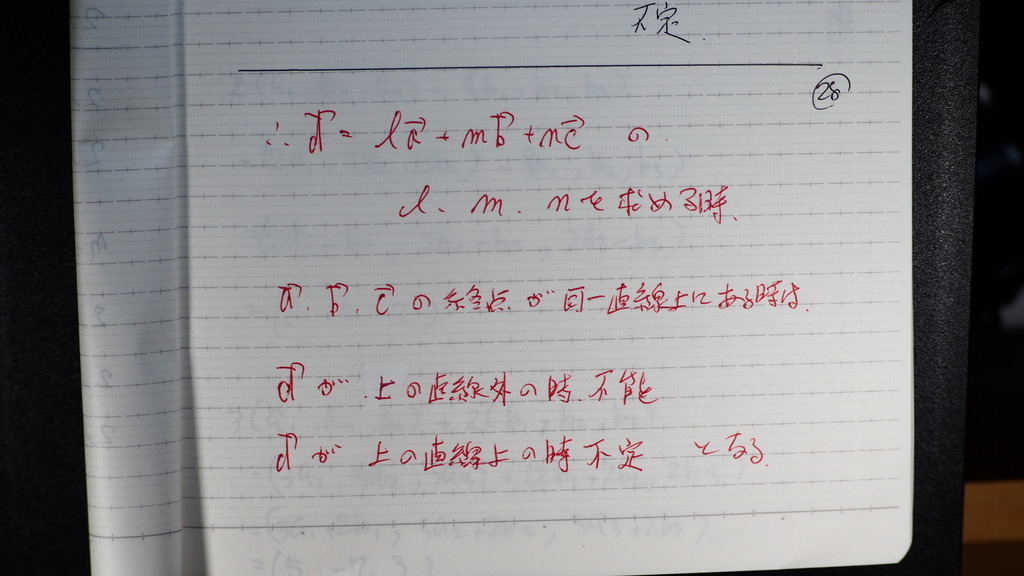 不定.
28
∴ d⃗ = l a⃗ + m b⃗ + n c⃗ の
l、m、nを求める時、
a⃗、b⃗、c⃗ の終点が同一直線上にある時は、
d⃗ が 上の直線外の時、不能
d⃗ が 上の直線上の時 不定 となる.